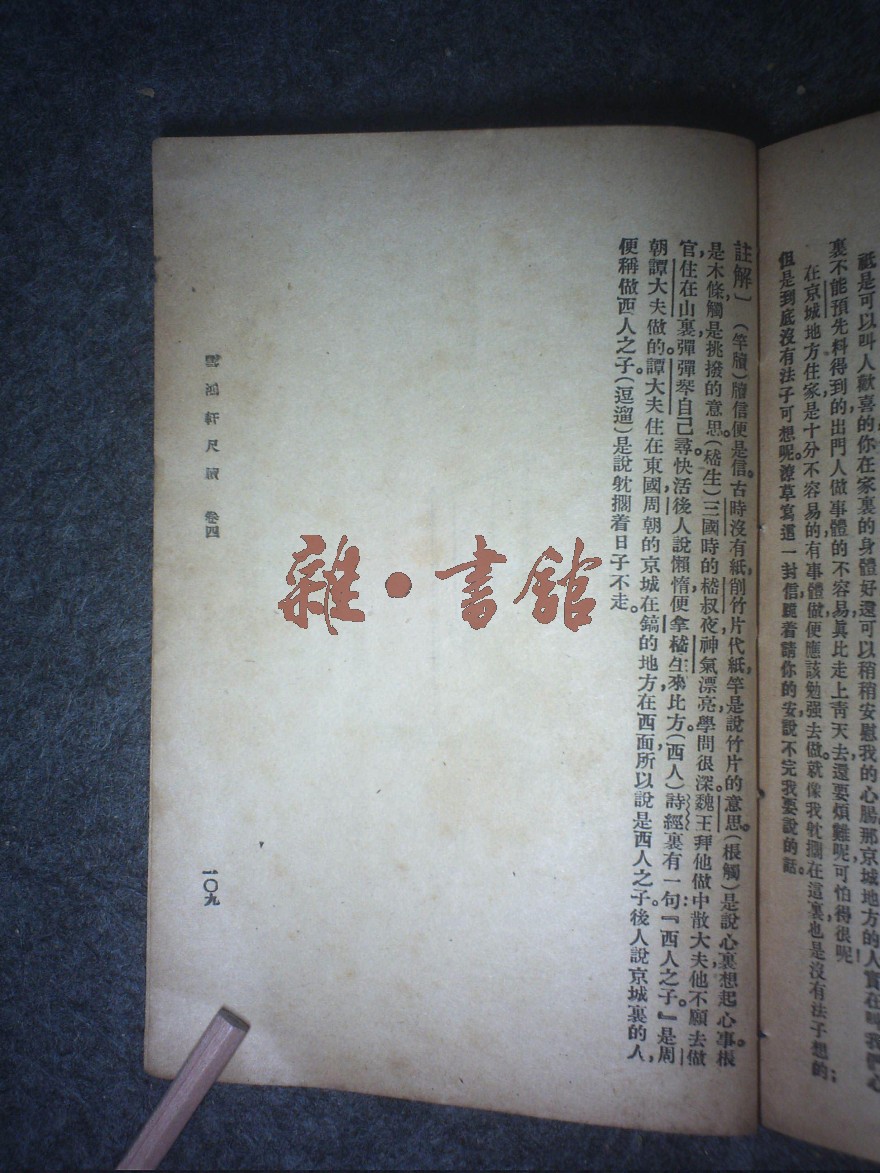 祗是可以叫人歡喜的你在家裏的身體好還可以稍稍安慰我的心腸那京城地方的人實在叫我們心
裏不能預先料得到的出門人做事體的不容易眞比走上靑天去還要煩難呢可怕得很呢!
在京城地方住家是十分不容易的有事體做便應該勉强去做就像我躭擱在這裏也是沒有法子想的;
但是到底沒有法子可想呢潦草寫這一封信跪着請你的安說不完我要說的話。
註解〕(竿牘)牘信便是信。古時沒有紙,削竹片代紙,竿是說竹片的意思。(棖觸)是說心裏想起心事。棖
是木條,觸是挑撥的意思。(嵇生)三國時的嵇叔夜,神氣漂亮,學問很深。魏王拜他做中散大夫,他不願去做
官,住在山裏彈彈琴,自己尋快活。後人說懶惰,便拿嵇生來比方。(西人)詩經裏有一句:『西人之子。』是周
朝譚大夫做的。譚大夫住在東國,周朝的京城在鎬的地方,在西面,所以說是西人之子。後人說京城裏的人,
便稱做西人之子。(逗遛)是說躭擱着日子不走。
雪鴻軒尺牘 卷四
一〇九
雜•書館